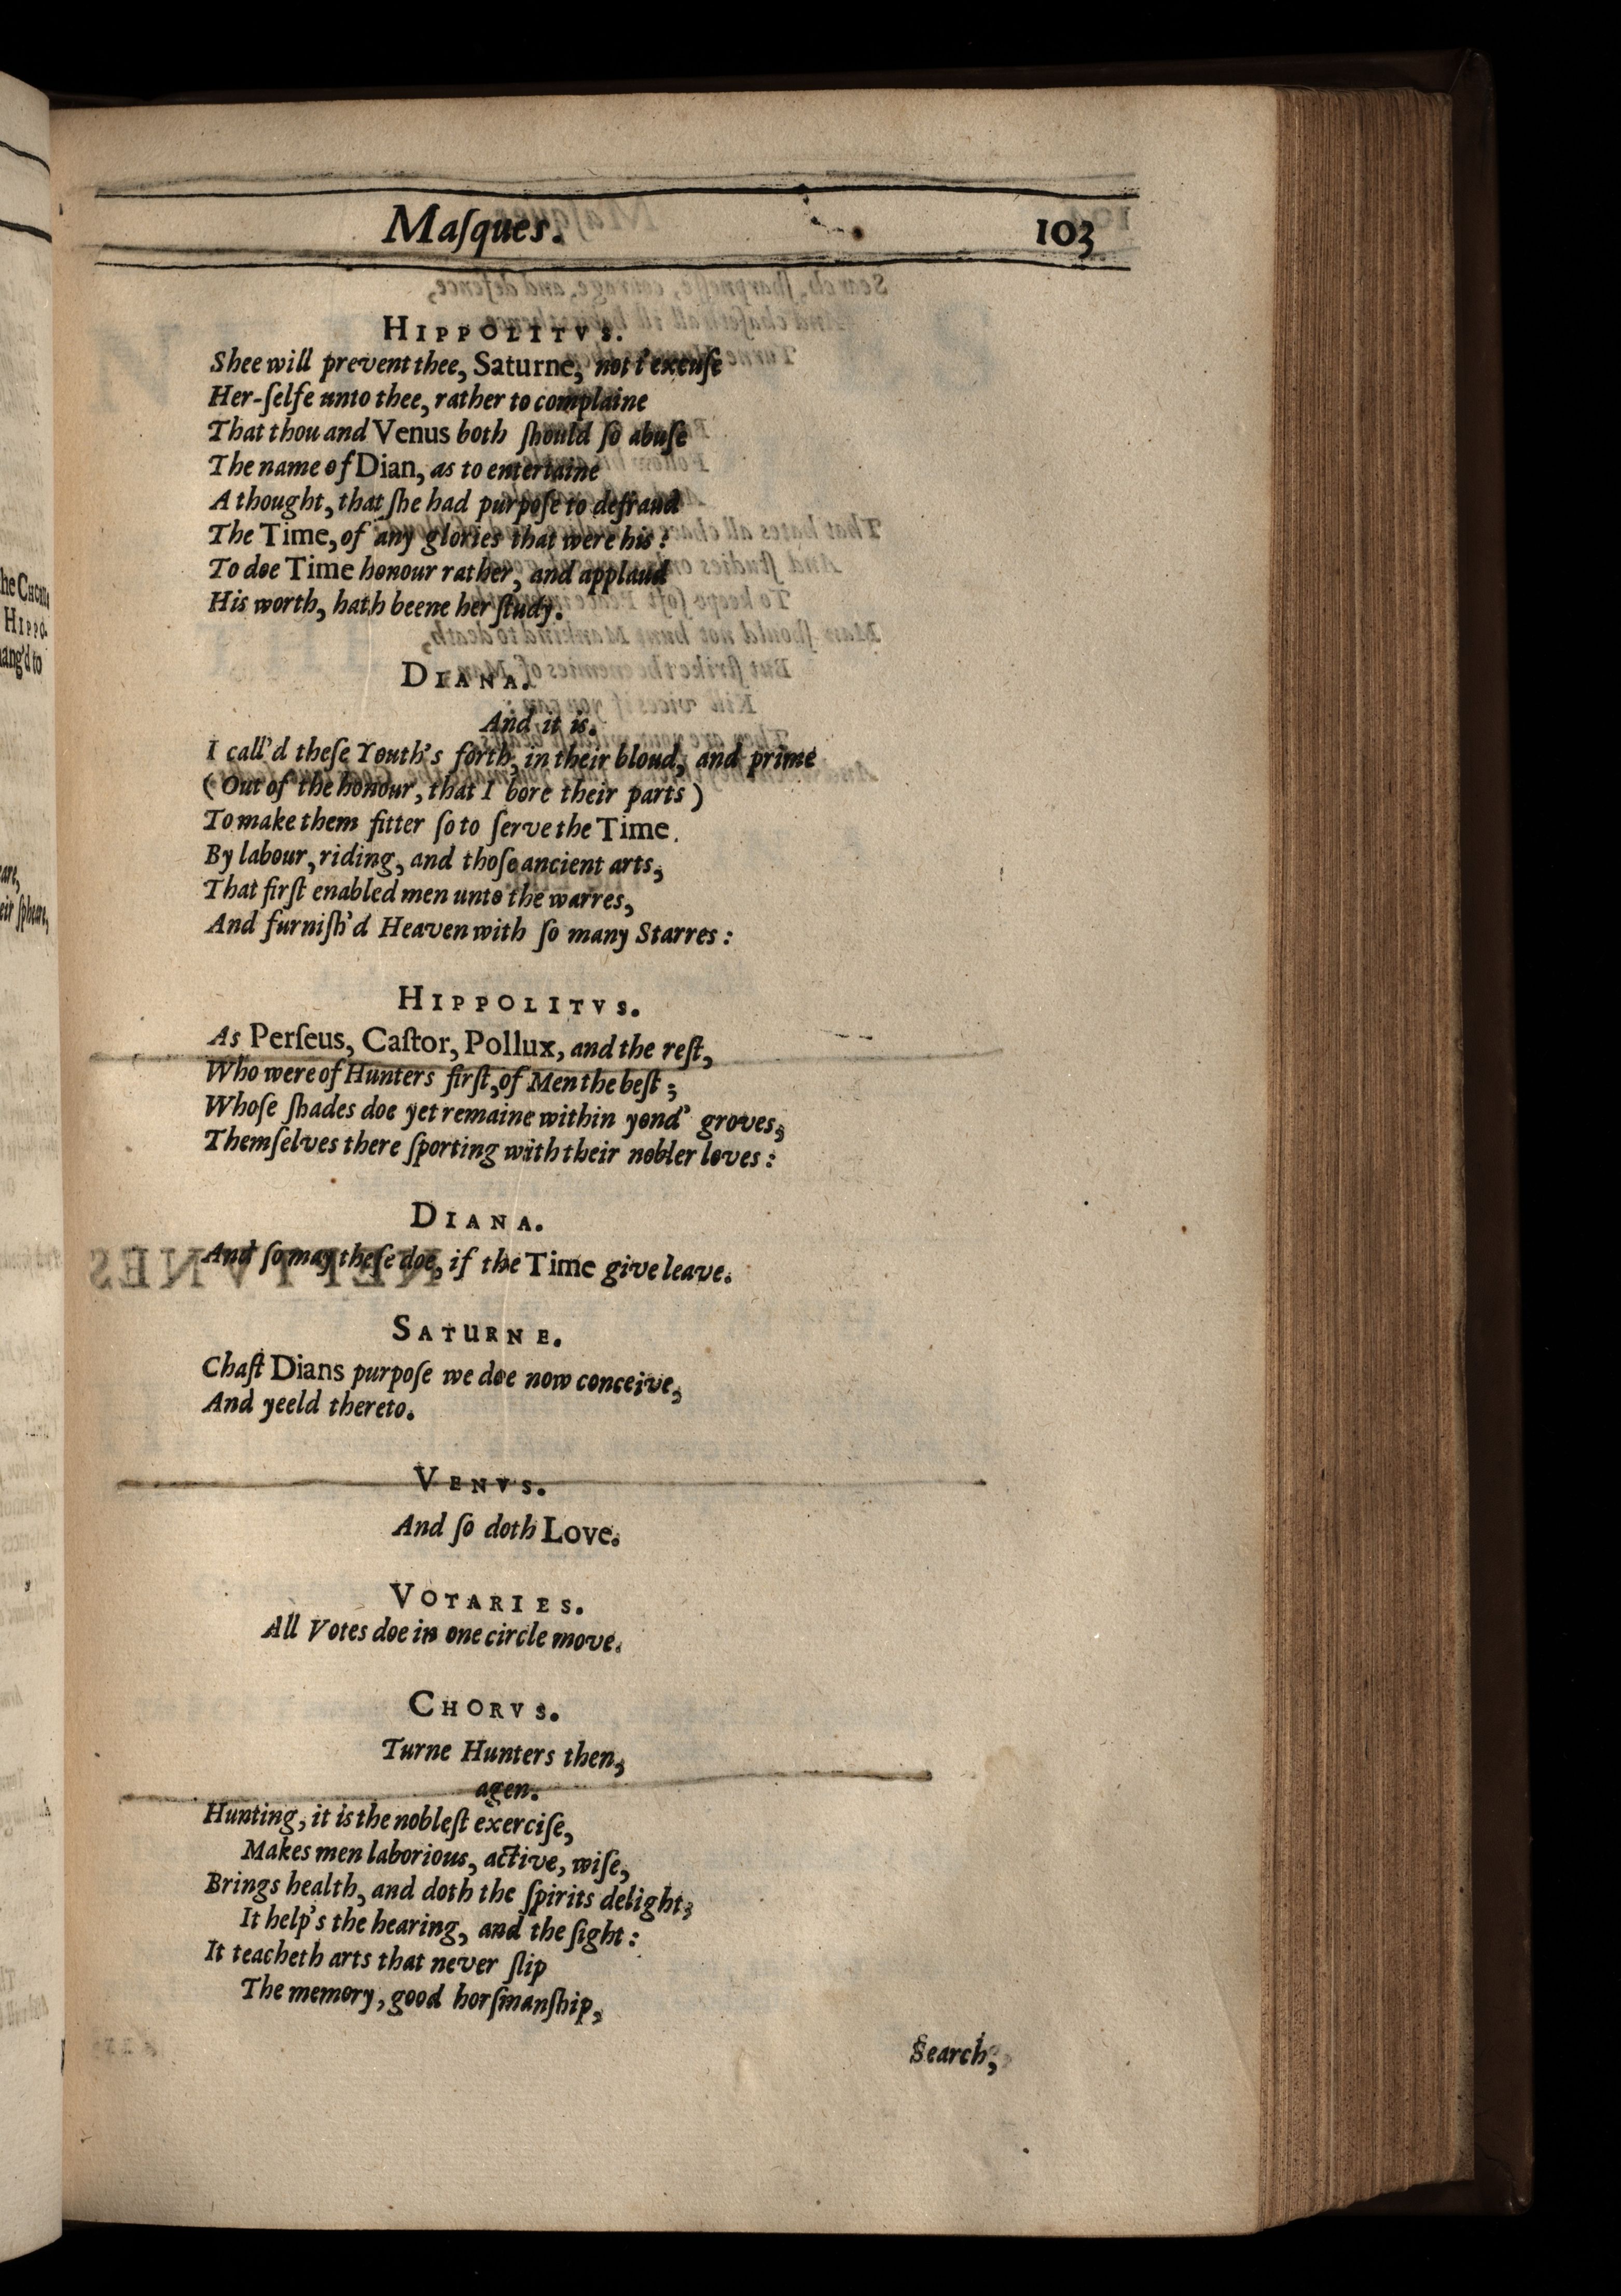 Maſques. 103
HIPPOLITVS.
Shee will prevent thee, Saturne, not t'excuſe
Her-ſelfe unto thee, rather to complaine
That thou and Venus both ſhould ſo abuſe
The name of Dian, as to entertaine
A thought, that ſhe had purpoſe to defraud
The Time, of any glories that were his:
To doe Time honour rather, and applaud
His worth, hath beene her ſtudy.
DIANA.
And it is.
I call'd theſe Youth's forth, in their bloud, and prime
(Out of the honour, that I bore their parts)
To make them fitter ſo to ſerve the Time.
By labour, riding, and thoſe ancient arts,
That firſt enabled men unto the warres,
And furniſh'd Heaven with ſo many Starres:
HIPPOLITVS.
As Perſeus, Caſtor, Pollux, and the reſt,
Who were of Hunters firſt, of Men the beſt;
Whoſe ſhades doe yet remaine within yond' groves,
Themſelves there ſporting with their nobler loves:
DIANA.
And ſo may theſe doe, if the Time give leave.
SATURNE.
Chaſt Dians purpoſe we doe now conceive,
And yeeld thereto.
VENVS.
And ſo doth Love.
VOTARIES.
All Votes doe in one circle move.
CHORVS.
Turne Hunters then,
agen.
Hunting, it is the nobleſt exerciſe,
Makes men laborious, active, wiſe,
Brings health, and doth the ſpirits delight,
It help's the hearing, and the ſight:
It teacheth arts that never ſlip
The memory, good horſmanſhip,
Search,